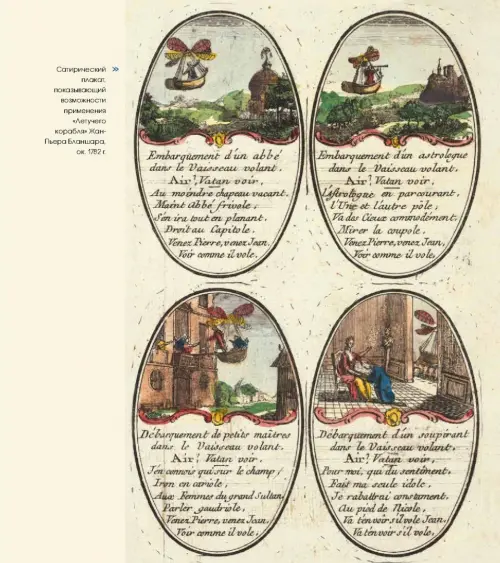 Сатирический »
плакат,
показывающий
возможности
применения
«Летучего
корабля» Жан-
Пьера Бланшара,
ок. 1782 г.
Embarquement d'un abbé
dans le Vaisseau volant.
Air: Vatan voir,
Au moindre chapeau vacant.
Maint Abbé frivole,
S'en ira tout en planant.
Droit au Capitole.
Venez Pierre, venez Jean,
Voir comme il vole.
Embarquement d'un astrologue
dans le Vaisseau volant.
Air: Vatan voir,
L'Astrologue en parcourant.
l'Une et l'autre pôle,
Va des Cieux commodément.
Mirer la coupole.
Venez Pierre, venez Jean,
Voir comme il vole.
Débarquement de petits maîtres
dans le Vaisseau volant.
Air: Vatan voir.
J'en connois qui sur le champ,
Iron en cariole,
Aux Femmes du grand Sultan,
Parler gaudriole,
Venez Pierre, venez Jean.
Voir comme il vole.
Débarquement d'un soupirant
dans le Vaisseau volant.
Air: Vatan voir,
Pour moi, qui du sentiment,
Fait ma seule idole.
Je rabattrai constament.
Au pied de Nicole,
Va t'en voir s'il vole Jean,
Va t'en voir s'il vole.